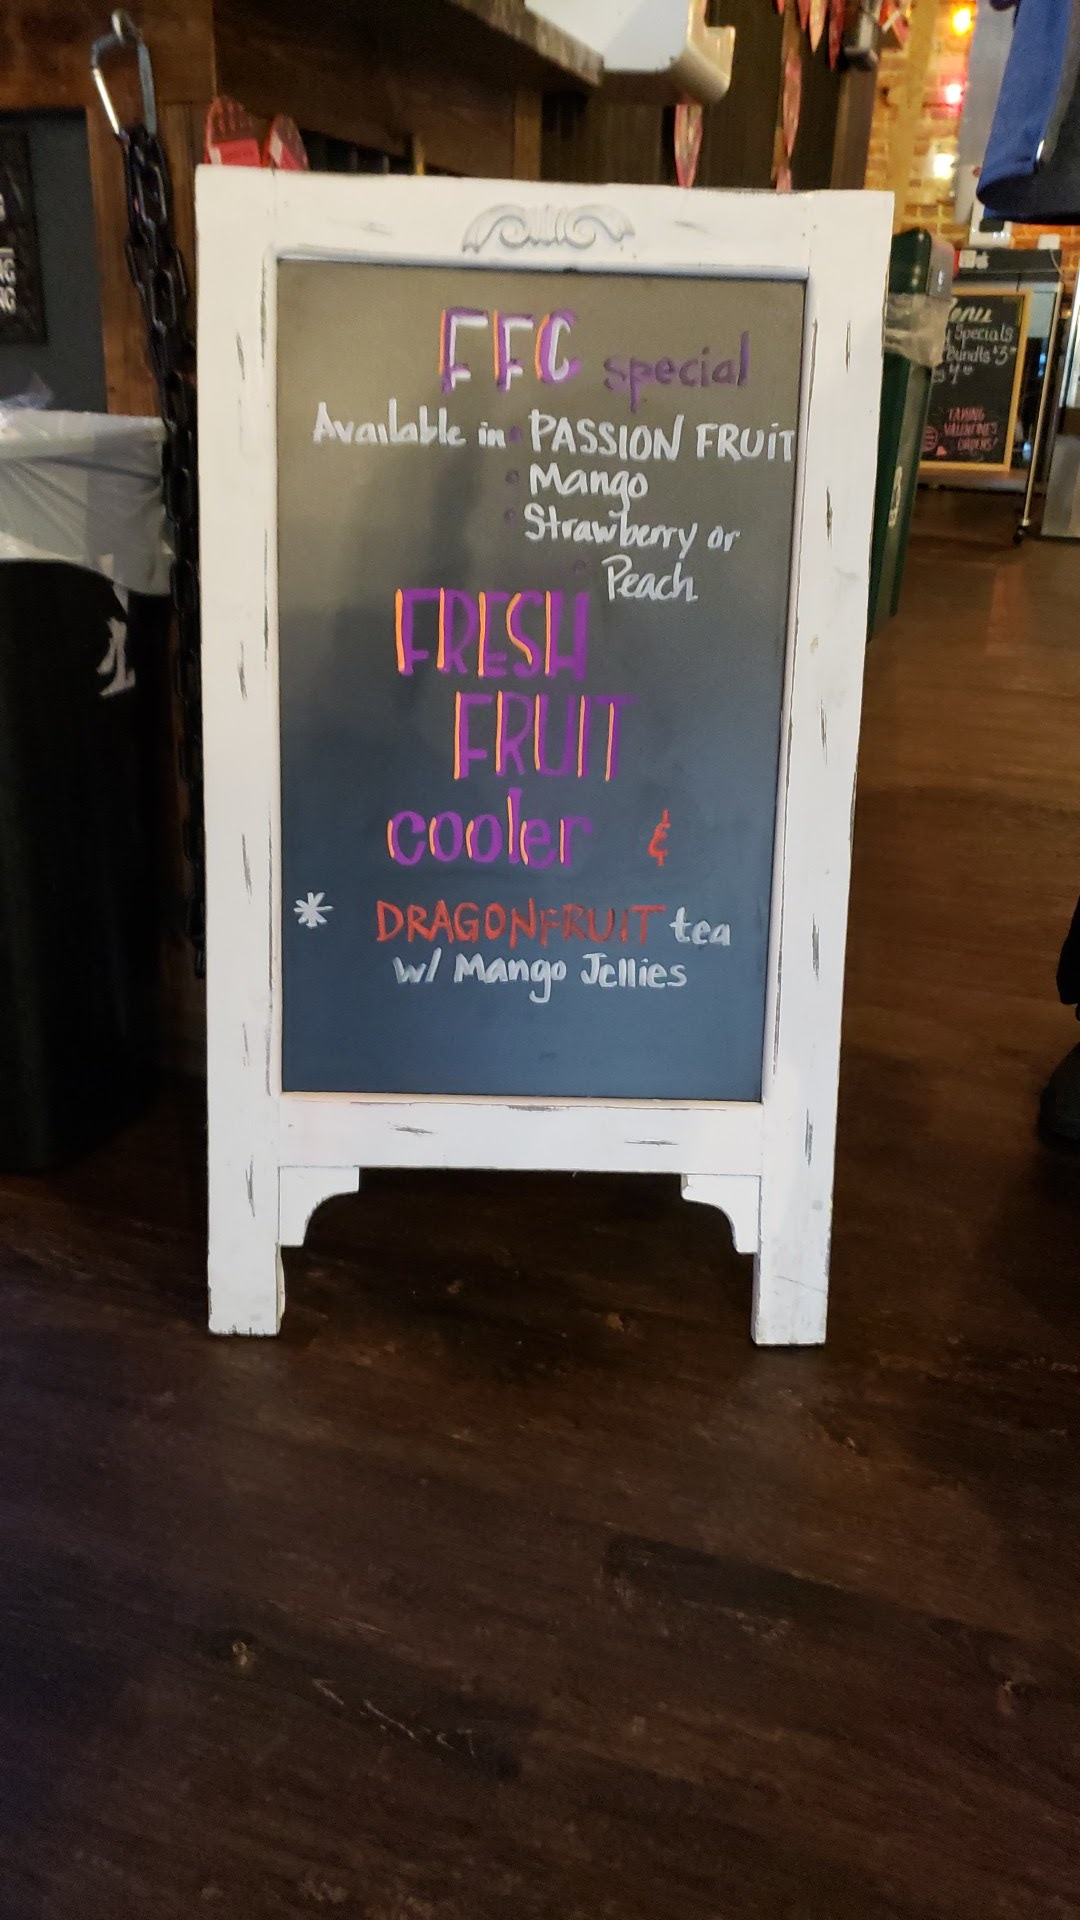 FFC special
Available in • PASSION FRUIT
• Mango
• Strawberry or
• Peach
FRESH
FRUIT
cooler &
* DRAGONFRUIT tea
w/ Mango Jellies
Specials
Bundts $3
TAKING
VALENTINE'S
ORDERS!